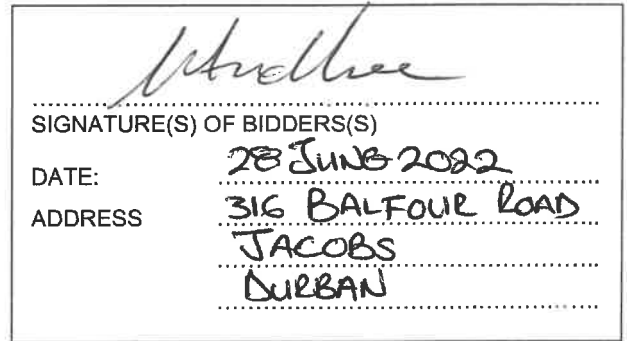 SIGNATURE(S) OF BIDDERS(S)
DATE: 28 JUNE 2022
ADDRESS 316 BALFOUR ROAD
JACOBS
DURBAN